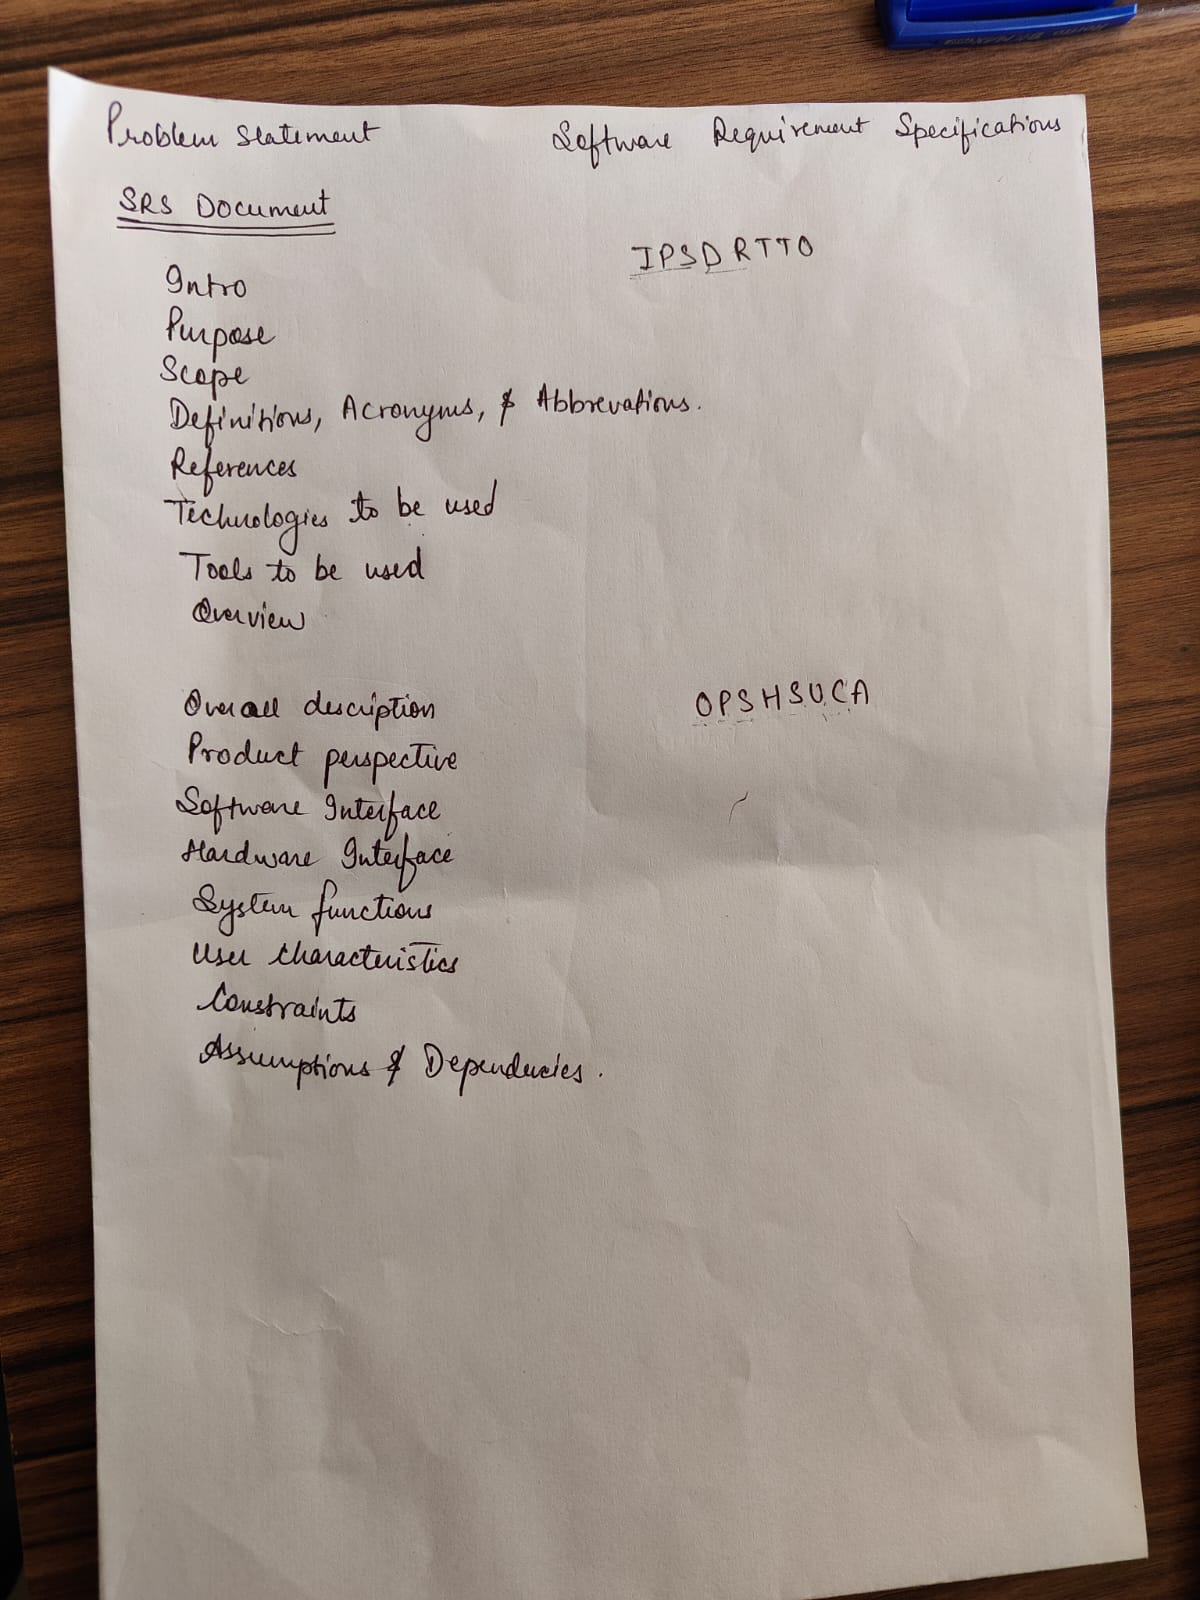 Problem Statement Software Requirement Specifications
SRS Document
IPSDRTTO
Intro
Purpose
Scope
Definitions, Acronyms, & Abbrevations.
References
Technologies to be used
Tools to be used
Overview
Overall description OPSHSUCA
Product perspective
Software Interface
Hardware Interface
System functions
User characteristics
Constraints
Assumptions & Dependencies.